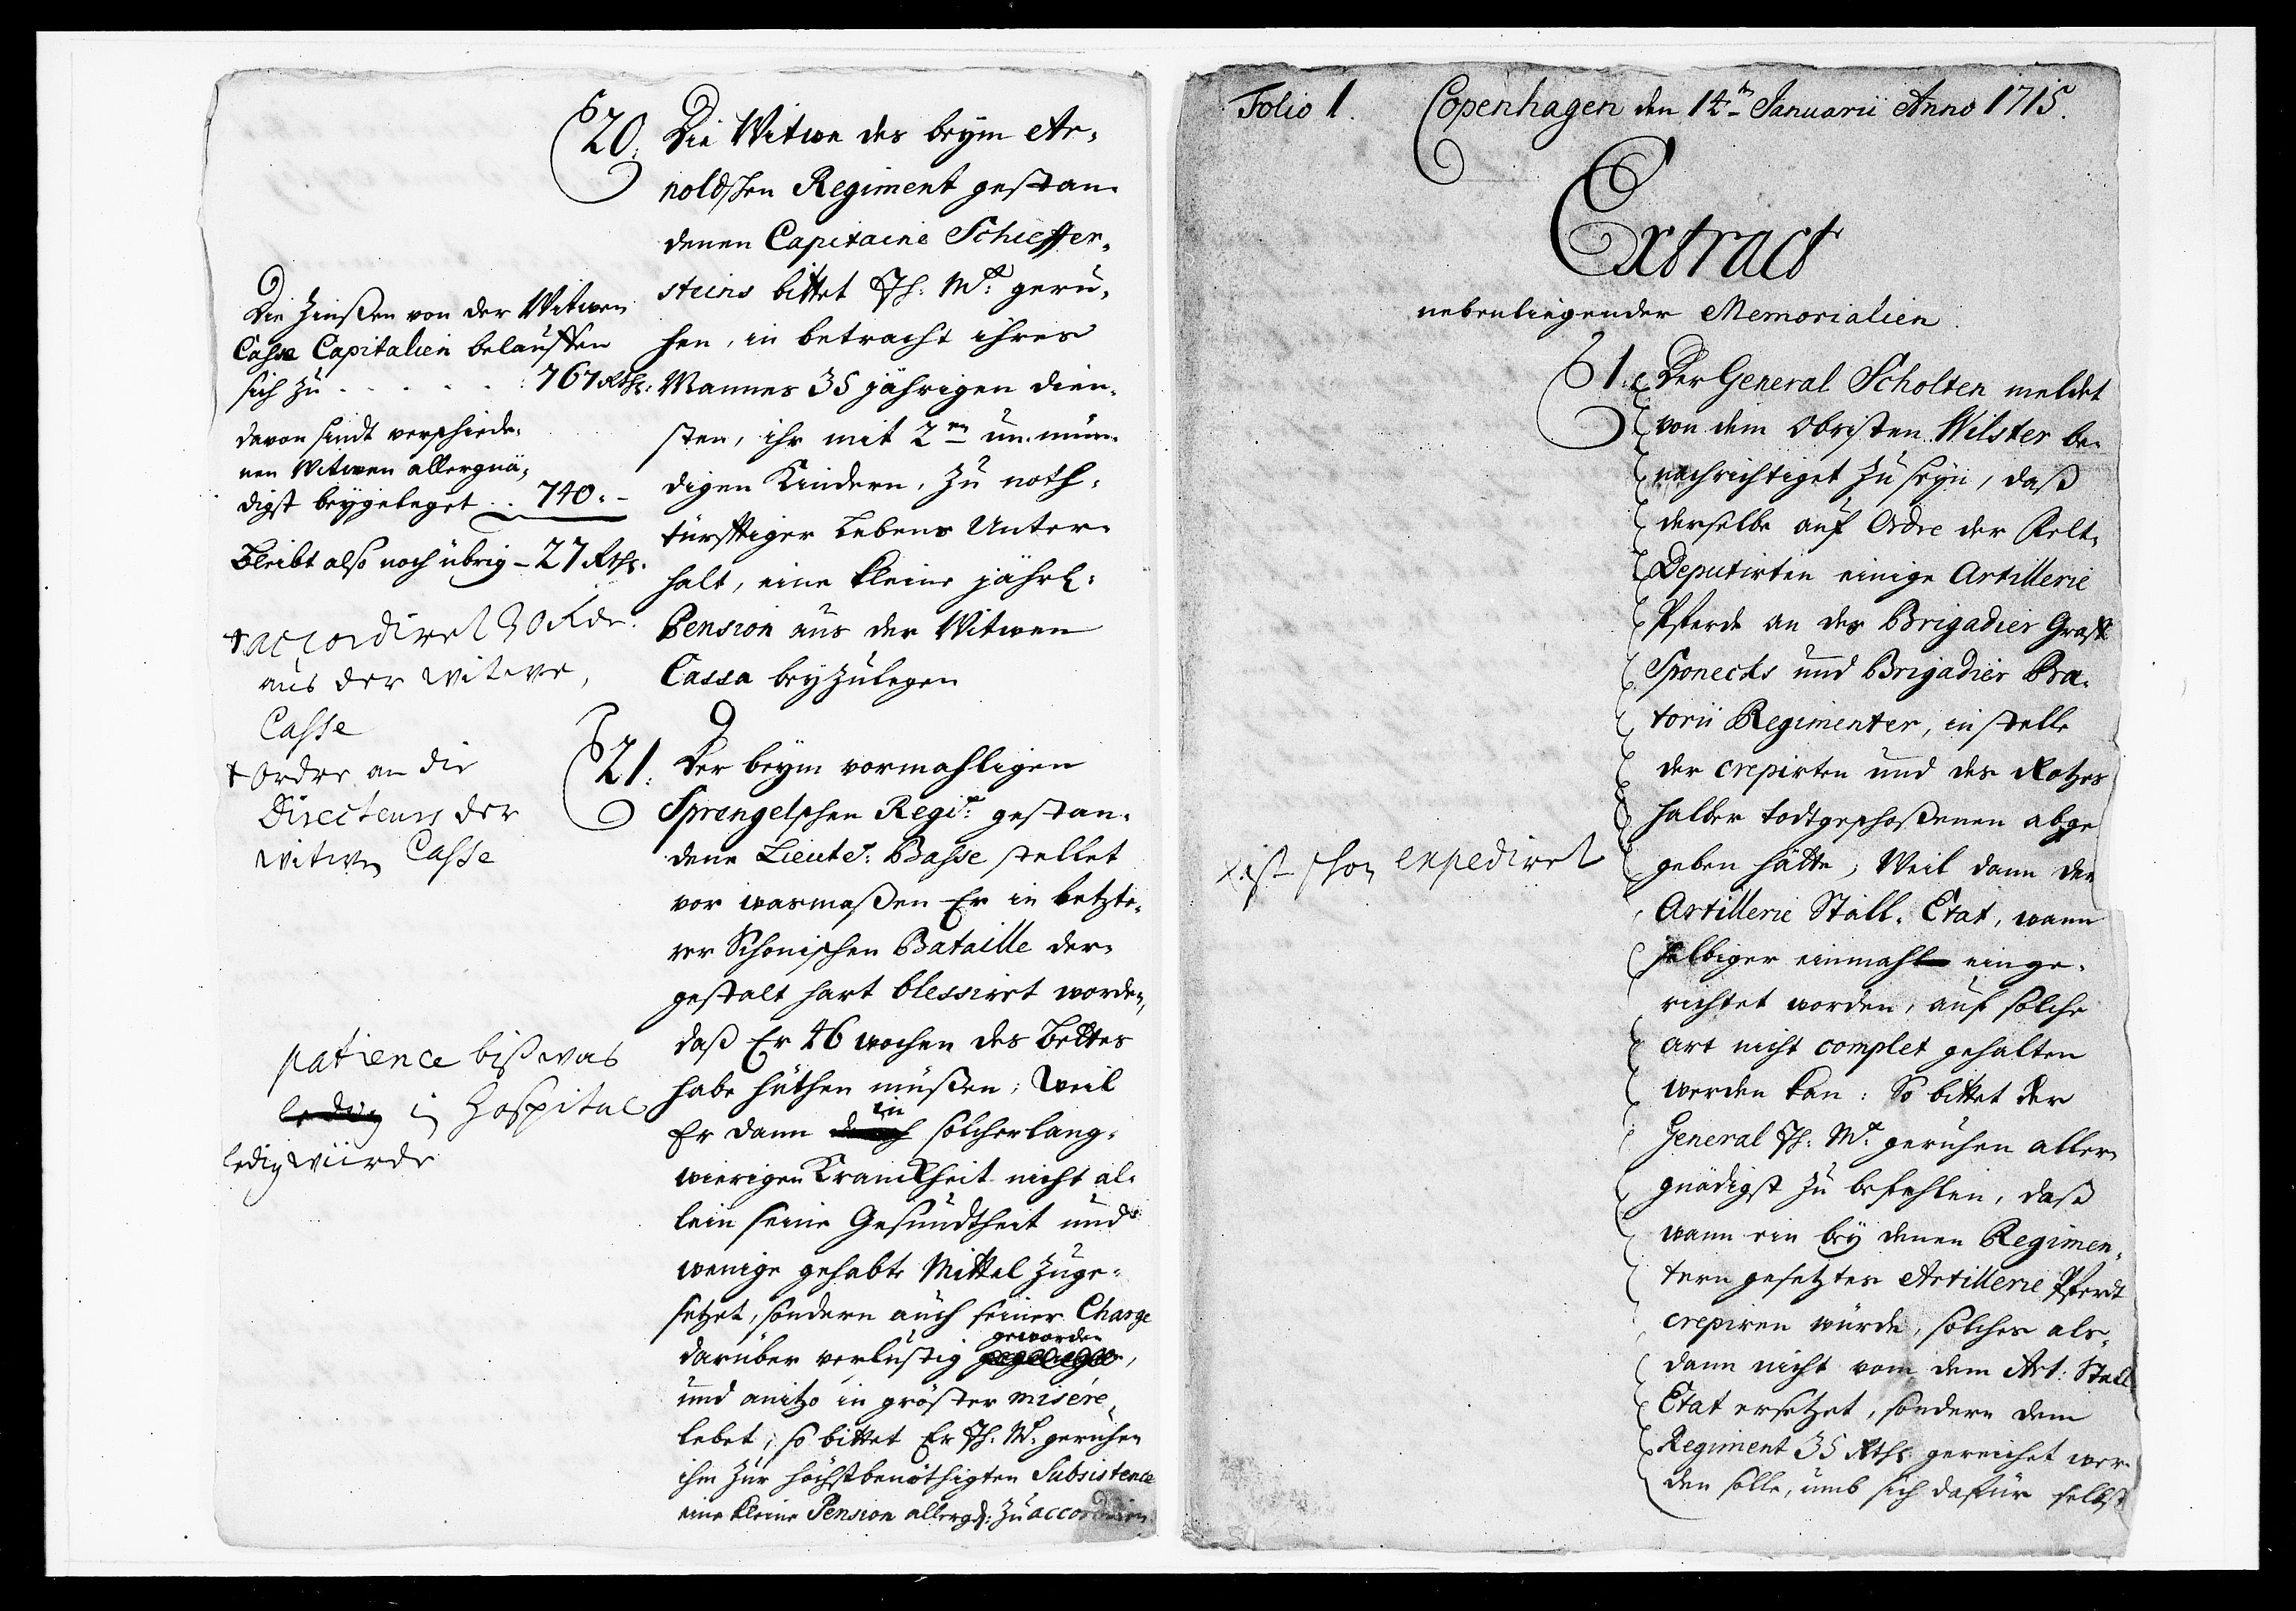 20. Die Witwe des beym Ar-
noldschen Regiment gestan-
denen Capitaine Schieffer-
steins bittet Ih: Mt: geru-
hen, in betracht ihres
Mannes 35 jährigen dien-
sten, ihr mit 2en un-mün-
digen Kindern, zu noth-
türfftiger Lebens Unter-
halt, eine kleine jährl:
Pension aus der Witwen
Cassa beyzulegen
Die Zinßen von der Witwen
Casse Capitalien belauffen
sich zu . . . . . : 767 Rthr:
davon sindt verschiede-
nen Witwen allergnä-
digst beygeleget . . 740. -
Bleibt also noch übrig - 27 Rthr.
+ accordiret 30 Rdr.
aus der witwe,
Casse
+ Ordre an die
Directeurs der
witwen Casse
21. Der beym vormahligen
Sprengelschen Regit: gestan-
dene Lieutet: Basse stellet
vor wasmaßen Er in letzte-
rer Schonischen Bataille der-
gestalt hart blessiret worden,
daß Er 46 wochen des Bettes
habe hüthen müßen; Weil
Er dann in solcher lang-
wierigen Kranckheit nicht al-
lein seine Gesundtheit und
wenige gehabte Mittel zuge-
setzet, sondern auch seiner Charge
darüber verlustig geworden,
und anitzo in gröster misére
lebet; so bittet Er Ih: Mt: geruhen
ihm zur höchstbenöthigten Subsistence
eine kleine Pension allergd: zu accordiren
patience biß was
ledig in Hospital
ledig würde
Folio 1. Copenhagen den 14ten Januarii Anno 1715.
Extract
nebenliegender Memorialien.
1. Der General Scholten meldet
von dem Obristen Wilster be-
nachrichtiget zu seyn, daß
derselbe auf Ordre der Felt-
Deputirten einige Artillerie
Pferde an des Brigadier Graff
Sponecks und Brigadier Bra-
torii Regimenter, in stelle
der crepirten und des Rotzes
halber todtgeschoßenen abge
geben hätte; Weil dann der
Artillerie Stall-Etat, wann
selbiger einmahl einge-
richtet worden, auf solche
art nicht complet gehalten
werden kan: So bittet der
General Ih: Mt: geruhen aller-
gnädigst zu befehlen, daß
wann ein bey denen Regimen-
tern gesetztes Artillerie Pferdt
crepiren würde, solches als-
dann nicht vom dem Art: Stall
Etat ersetzet, sondern dem
Regiment 35 Rthr gereichet wer-
den solle, umb sich dafür selbst
x ist schon expediret